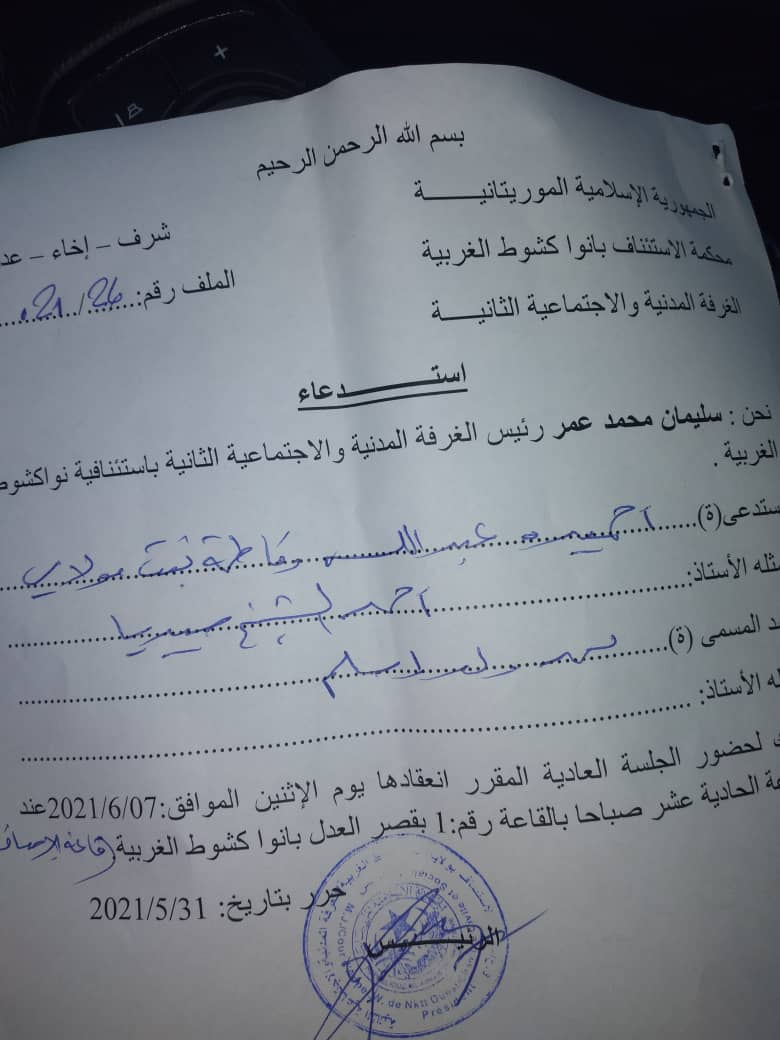 بسم الله الرحمن الرحيم
الجمهورية الإسلامية الموريتانيـــــــة
شرف – إخاء – عد
محكمة الاستئناف بانوا كشوط الغربية
الملف رقم:......26/21...........
الغرفة المدنية والاجتماعية الثانيـــــة
استــــــــــــدعاء
نحن : سليمان محمد عمر رئيس الغرفة المدنية والاجتماعية الثانية باستئنافية نواكشوط
الغربية .
ستدعى(ة)...... عبد الله وفاطمة بنت مولاي
مثله الأستاذ:........ أحمد الشيخ سيديا
د المسمى (ة)......
له الأستاذ: ......
ك لحضور الجلسة العادية المقرر انعقادها يوم الإثنين الموافق:2021/6/07عند
عة الحادية عشر صباحا بالقاعة رقم:1 بقصر العدل بانوا كشوط الغربية
حرر بتاريخ: 2021/5/31
الرئيــــــس
Président